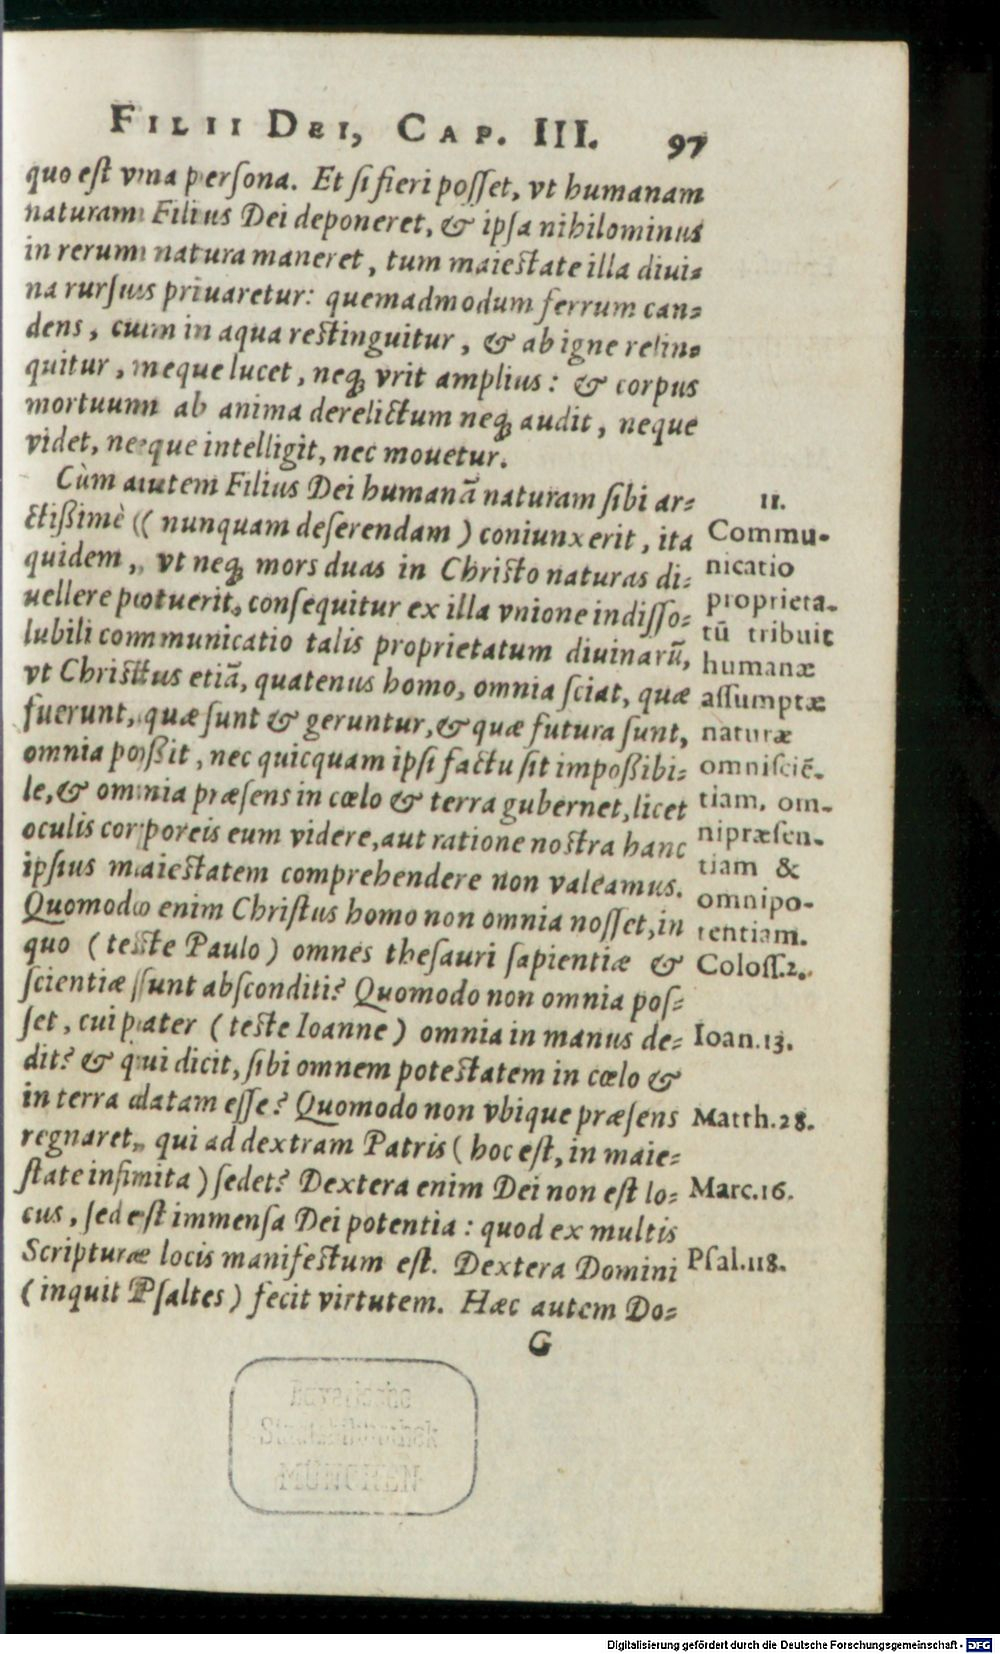 FILII DEI, CAP. III. 97
quo est vna persona. Et si fieri posset, vt humanam
naturam Filius Dei deponeret, & ipsa nihilominus
in rerum natura maneret, tum maiestate illa diui=
na rursus priuaretur: quemadmodum ferrum can=
dens, cum in aqua restinguitur, & ab igne relin=
quitur, neque lucet, neq; vrit amplius: & corpus
mortuum ab anima derelictum neq; audit, neque
videt, neque intelligit, nec mouetur.
Cùm autem Filius Dei humanã naturam sibi ar=
ctißimè (nunquam deserendam) coniunxerit, ita
quidem, vt neq; mors duas in Christo naturas di=
uellere potuerit, consequitur ex illa vnione indisso=
lubili communicatio talis proprietatum diuinarũ,
vt Christus etiã, quatenus homo, omnia sciat, quæ
fuerunt, quæ sunt & geruntur, & quæ futura sunt,
omnia poßit, nec quicquam ipsi factu sit impoßibi=
le, & omnia præsens in cœlo & terra gubernet, licet
oculis corporeis eum videre, aut ratione nostra hanc
ipsius maiestatem comprehendere non valeamus.
Quomodo enim Christus homo non omnia nosset, in
quo (teste Paulo) omnes thesauri sapientiæ &
scientiæ sunt absconditi? Quomodo non omnia pos=
set, cui pater (teste Ioanne) omnia in manus de=
dit? & qui dicit, sibi omnem potestatem in cœlo &
in terra datam esse? Quomodo non vbique præsens
regnaret, qui ad dextram Patris (hoc est, in maie=
state infinita) sedet? Dextera enim Dei non est lo=
cus, sed est immensa Dei potentia: quod ex multis
Scripturæ locis manifestum est. Dextera Domini
(inquit Psaltes) fecit virtutem. Hæc autem Do=
G
11.
Commu-
nicatio
proprieta-
tũ tribuit
humanæ
assumptæ
naturæ
omniscie͂-
tiam, om-
nipræsen-
tiam &
omnipo-
tentiam.
Coloss.2.
Ioan.13.
Matth.28.
Marc.16.
Psal.118.
Digitalisierung gefördert durch die Deutsche Forschungsgemeinschaft - DFG